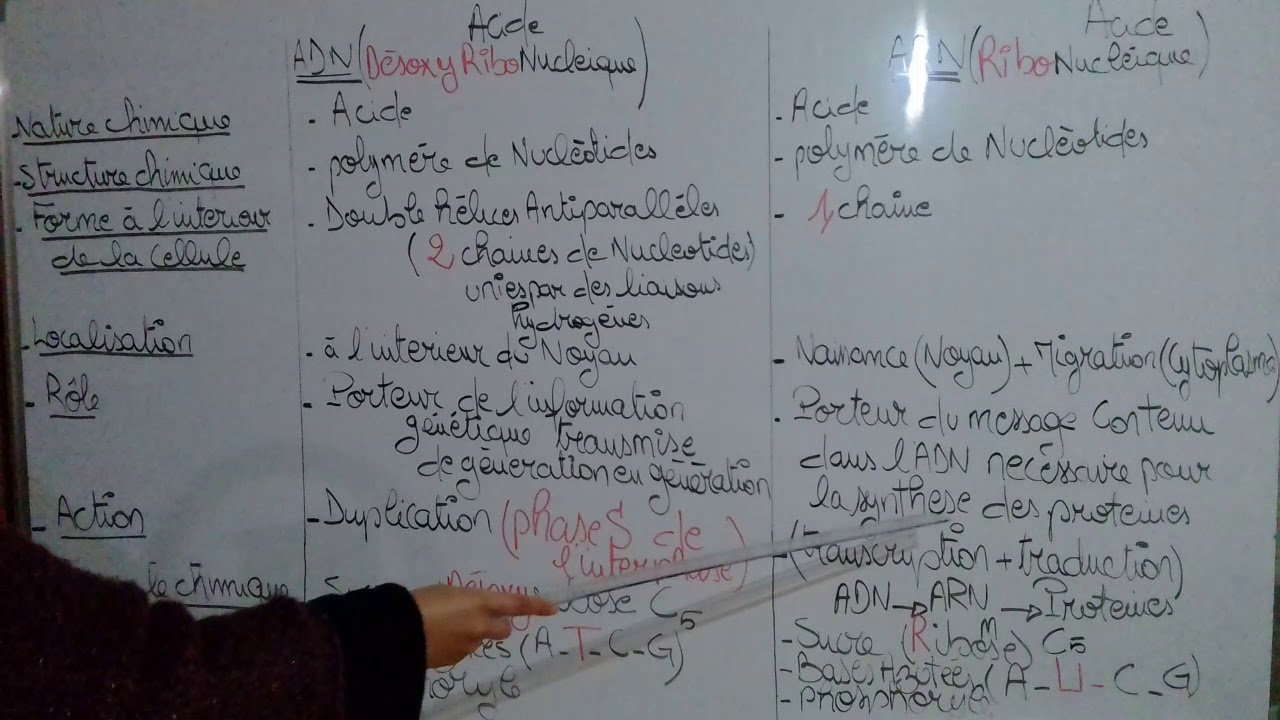 Acide
ADN (DésoxyRiboNucléique)
Acide
ARN (RiboNucléique)
Nature chimique
- Acide
- Acide
- Structure chimique
- polymère de Nucléotides
- polymère de Nucléotides
- Forme à l'intérieur
de la cellule
- Double hélices Antiparallèles
(2 chaines de Nucleotides)
unies par des liaisons
hydrogènes
- 1 chaine
- Localisation
- à l'interieur du Noyau
- Naissance (Noyau) + Migration (Cytoplasme)
- Rôle
- Porteur de l'information
génétique transmise
de génération en génération
- Porteur du message Contenu
dans l'ADN necéssaire pour
la synthese des proteines
- Action
- Duplication (phase S de
l'interphase)
- (transcription + traduction)
ADN → ARNm → Proteines
chimique
C5
(A-T-C-G)
- Sucre (Ribose) C5
- Bases Azotées (A-U-C-G)